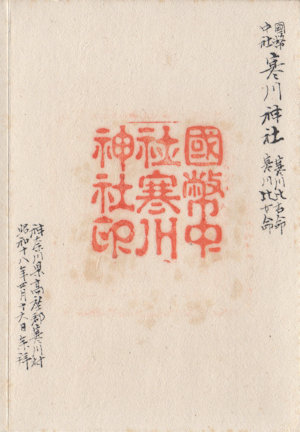 國幣
中社
寒川神社
寒川比古命
寒川比女命
國幣中
社寒川
神社印
神奈川県高座郡寒川村
昭和十八年四月十六日参拝